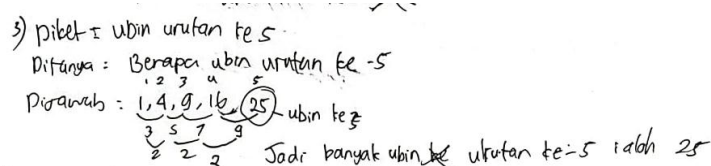 3) Diket : ubin urutan ke 5
Ditanya : Berapa ubin urutan ke -5
1 2 3 4 5
Dijawab : 1, 4, 9, 16, 25 ubin ke 5
3 5 7 9
2 2 2
Jadi banyak ubin urutan ke-5 ialah 25